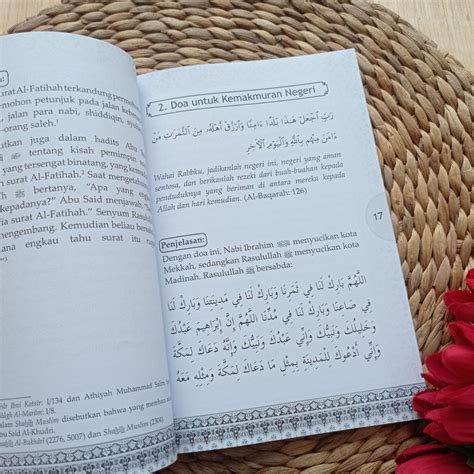 surat Al-Fatihah terkandung permohonan
mohon petunjuk pada jalan kebenaran
, jalan para nabi, shiddiqin, syuhada
-orang saleh.¹
utkan juga dalam hadits Abu
tentang kisah pemimpin
yang tersengat binatang, yang kemudian
n surat Al-Fatihah.² Saat mengetahui
ﷺ bertanya, "Apa yang
kepadanya?" Abu Said menjawab,
a surat Al-Fatihah." Senyum Rasulullah
mengembang. Kemudian beliau bersabda
ana engkau tahu surat itu
Ibnu Katsir: I/134 dan Athiyah Muhammad Salim
Bulugh Al-Maram: I/8.
dalam Shahih Muslim disebutkan bahwa yang membaca
Abu Said Al-Khudri.
Al-Bukhari (2276, 5007) dan Shahih Muslim (2304).
2. Doa untuk Kemakmuran Negeri
رَبِّ اجْعَلْ هَٰذَا بَلَدًا ءَامِنًا وَارْزُقْ أَهْلَهُ مِنَ الثَّمَرَٰتِ مَنْ
ءَامَنَ مِنْهُم بِاللَّهِ وَالْيَوْمِ الْآخِرِ
Wahai Rabbku, jadikanlah negeri ini, negeri yang aman
sentosa, dan berikanlah rezeki dari buah-buahan kepada
penduduknya yang beriman di antara mereka kepada
Allah dan hari kemudian. (Al-Baqarah: 126)
17
Penjelasan:
Dengan doa ini, Nabi Ibrahim ﷺ menyucikan kota
Mekkah, sedangkan Rasulullah ﷺ menyucikan kota
Madinah. Rasulullah ﷺ bersabda:
اللَّهُمَّ بَارِكْ لَنَا فِي ثَمَرِنَا وَبَارِكْ لَنَا فِي مَدِينَتِنَا وَبَارِكْ لَنَا
فِي صَاعِنَا وَبَارِكْ لَنَا فِي مُدِّنَا اللَّهُمَّ إِنَّ إِبْرَاهِيمَ عَبْدُكَ
وَخَلِيلُكَ وَنَبِيُّكَ وَإِنِّي عَبْدُكَ وَنَبِيُّكَ وَإِنَّهُ دَعَاكَ لِمَكَّةَ
وَإِنِّي أَدْعُوكَ لِلْمَدِينَةِ بِمِثْلِ مَا دَعَاكَ لِمَكَّةَ وَمِثْلِهِ مَعَهُ